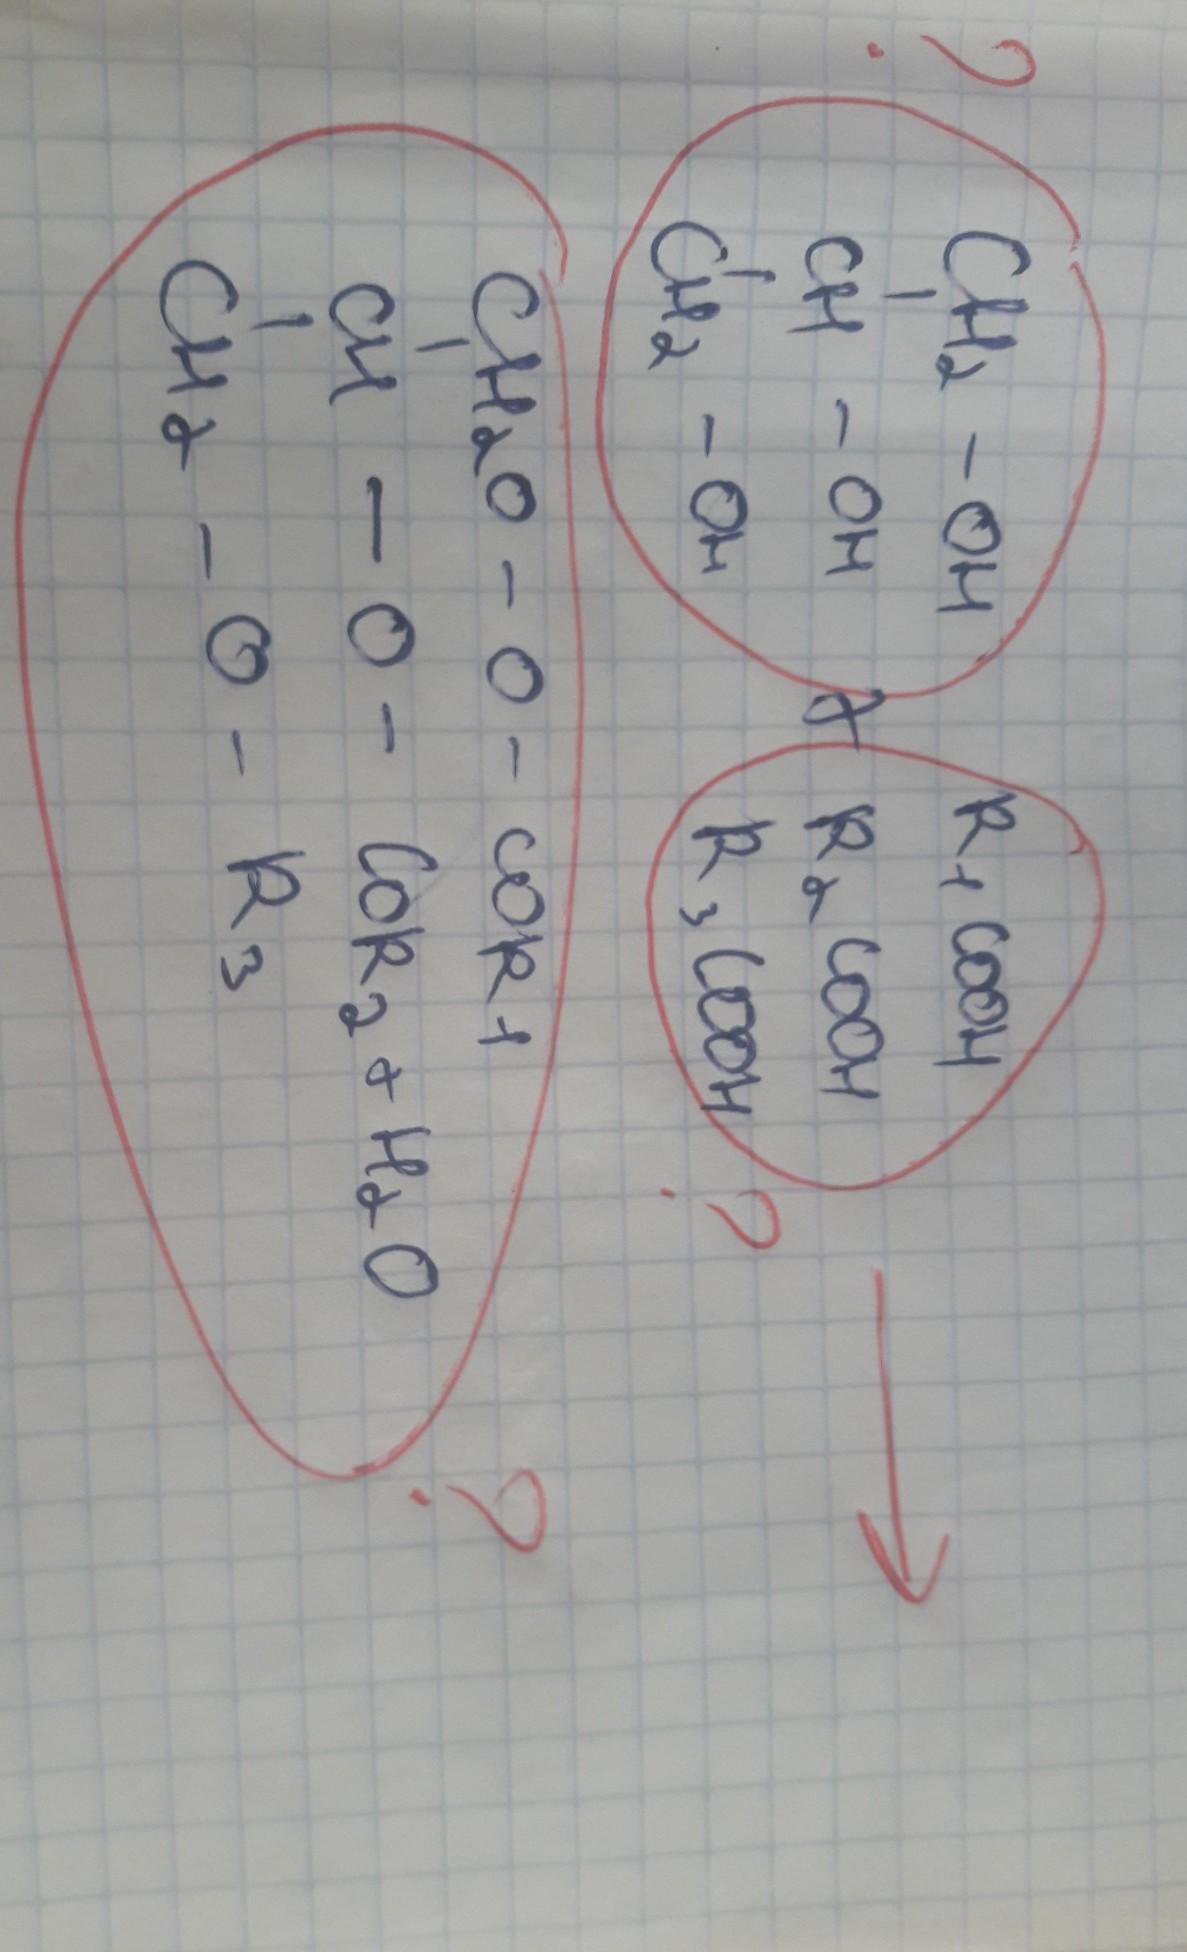 ?
CH2 - OH
CH - OH
CH2 - OH
+
R1COOH
R2COOH
R3COOH
?
→
CH2O - O - COR1
CH - O - COR2 + H2O
CH2 - O - R3
?